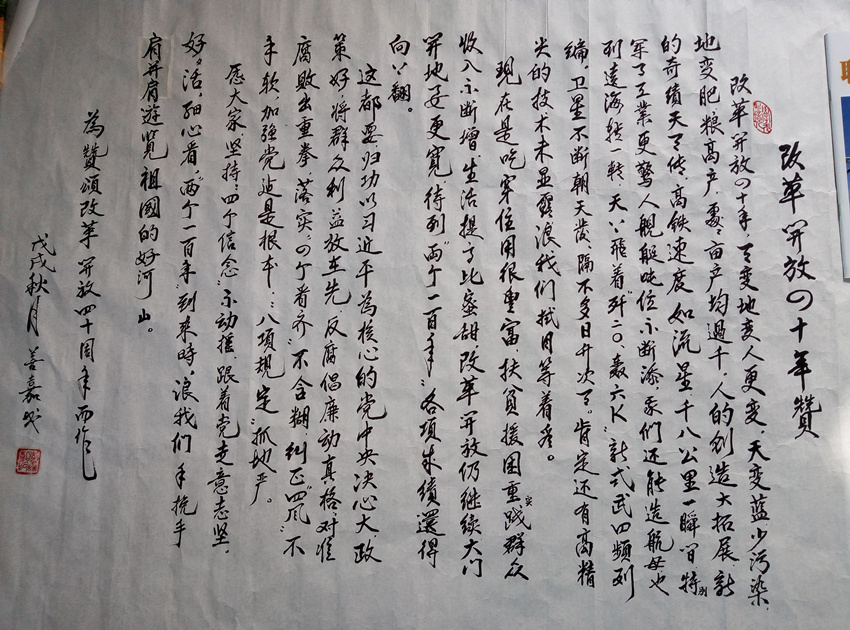 改革开放四十年赞
改革开放四十年,天变地变人更变,天变蓝少污染,
地变肥,粮高产,亩产均过千,人的创造大拓展,新
的奇绩天天传,高铁速度如流星,千八公里一瞬间,特别
军工工业更惊人,舰艇吨位不断添,我们还能造航母,也
到远海转一转,天天飞着歼二〇、轰六K,新式武四频列
编,卫星不断朝天发,隔不多日升次了。肯定还有高精
尖的技术未显露,浪我们拭目等着看。
现在是吃穿住用很丰富,扶贫援困重实践,群众
收入不断增,生活提了比蜜甜,改革开放仍继续,大门
开地要更宽,待到“两个一百年”,各项求绩还得
向上翻。
这都要归功以习近平为核心的党中央决心大,政
策好,将群众利益放在先,反腐倡廉动真格,对准
腐败出重拳,落实“四个看齐”不含糊,纠正“四风”不
手软,加强党建是根本,“八项规定”抓地严。
愿大家坚持“四个信念”不动摇,跟着党走意志坚,
好好活,细心看,“两个一百年”到来时,浪我们手挽手
肩并肩,游览祖国的好河山。
为赞颂改革开放四十周年而作
戊戌秋月 善嘉书